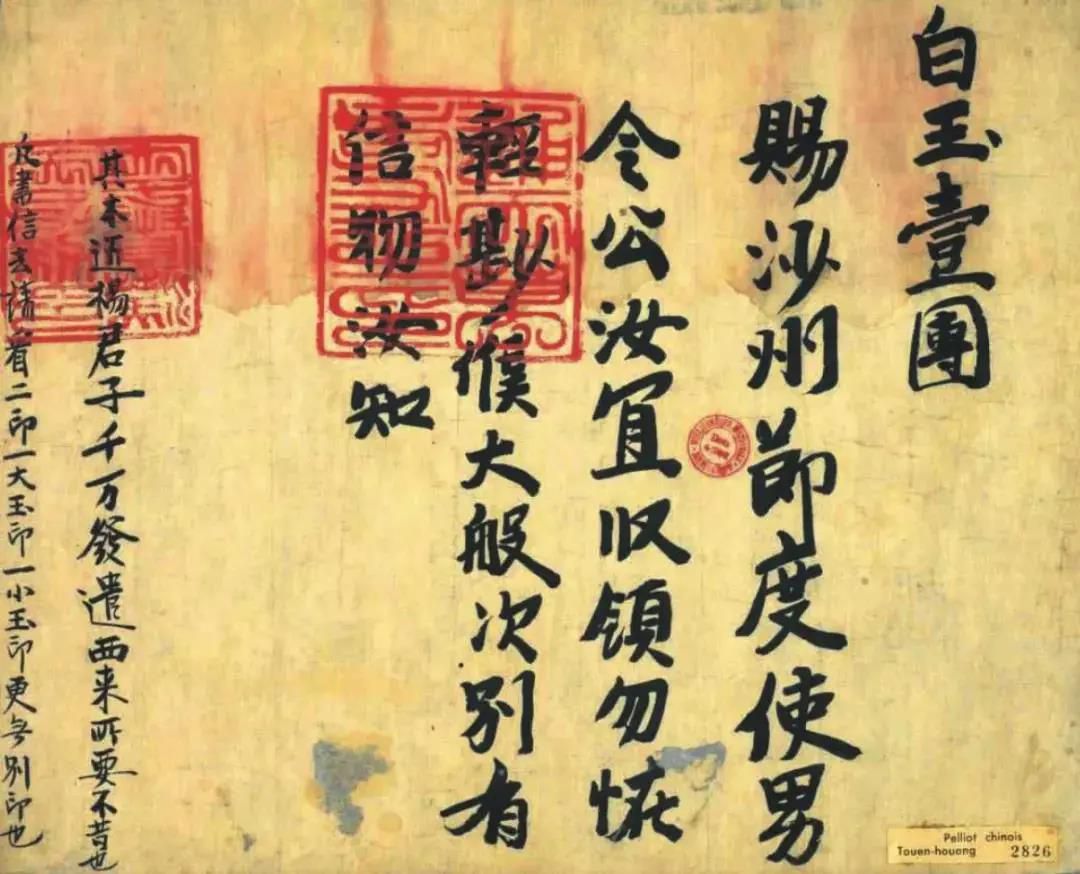 白玉壹團
賜沙州節度使男
令公汝宜收領勿恠
輕尠候大般次別有
信物汝知
其木匠楊君子千万發遣西来所要不昔也
凡書信去請看二印一大玉印一小玉印更无别印也
Pelliot chinois
Touen-houang 2826